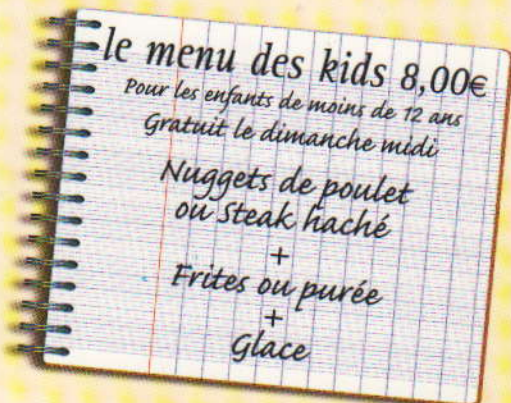 le menu des kids 8,00€
Pour les enfants de moins de 12 ans
Gratuit le dimanche midi
Nuggets de poulet
ou Steak haché
+
Frites ou purée
+
Glace